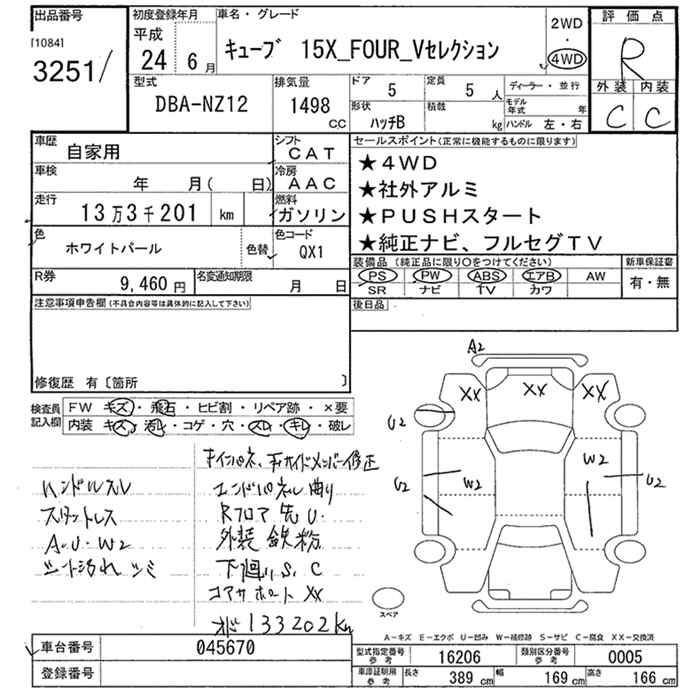 出品番号
[1084]
3251/
初度登録年月
平成
24 6月
車名・グレード
キューブ 15X_FOUR_Vセレクション
2WD
・
4WD
評価点
R
外装 内装
C C
型式
DBA-NZ12
排気量
1498
CC
ドア
5
定員
5人
ディーラー・並行
形状
ハッチB
積載
kg
モデル年式
年
ハンドル 左・右
車歴
自家用
シフト
CAT
車検
年 月( 日)
冷房
AAC
走行
13万3千201 km
燃料
ガソリン
色
ホワイトパール
色替
色コード
QX1
R券
9,460円
名変通知期限
月 日
セールスポイント(正常に機能するものに限ります)
★4WD
★社外アルミ
★PUSHスタート
★純正ナビ、フルセグTV
装備品(純正品に限り○をつけてください)
新車保証書
PS PW ABS エアB AW
有・無
SR ナビ TV カワ
後日品
注意事項申告欄(不具合内容等は具体的に記入して下さい)
修復歴 有〔箇所 〕
検査員記入欄
FW キズ・飛石・ヒビ割・リペア跡・×要
内装 キズ・汚れ・コゲ・穴・スレ・キレ・破レ
ハンドルスレ
スタットレス
A・U・W2
シート汚れ シミ
エンドパネル曲り
Rフロア先U
外装鉄粉
下廻りS、C
コアサポートXX
133202km
A2
XX XX XX
U2
W2
U2
W2
U2
スペア
A-キズ E-エクボ U-凹み W-補修跡 S-サビ C-腐食 XX-交換済
車台番号
045670
登録番号
型式指定番号
参考
16206
類別区分番号
参考
0005
車庫証明用
参考
長さ
389 cm
幅
169 cm
高さ
166 cm